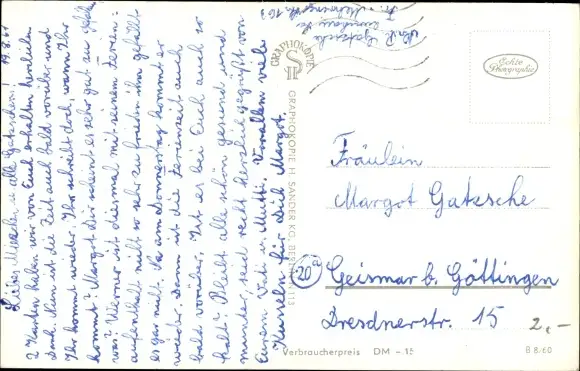 19.8.61
Liebes Mirachen u. alle Gatzschen!
2 Karten haben wir von Euch erhalten herzlichen
Dank. Nun ist die Zeit auch bald vorüber und
Ihr kommt wieder. Ihr schreibt doch, wann Ihr
kommt? Margot Dir scheint es sehr gut zu gefallen
was? Werner ist diesmal mit seinem Ferien-
aufenthalt nicht so sehr zufrieden ihm gefällt
es gar nicht. Na am Donnerstag kommt er
wieder. Dann ist die Ferienzeit auch
bald vorüber. Ist es bei Euch auch so
kalt? Bleibt alle schön gesund und
munter, seid recht herzlich gegrüßt von
Eurem Vati u. Mutti. Vor allem viele
Küsseln für Dich Margot.
GRAPHOKOPIE
SH
GRAPHOKOPIE H. SANDER KG. BERLIN
Echte Photographie
Fräulein
Margot Gatzsche
20a
Geismar b. Göttingen
Dresdnerstr. 15
2,-
Verbraucherpreis DM -.15
B 8/60